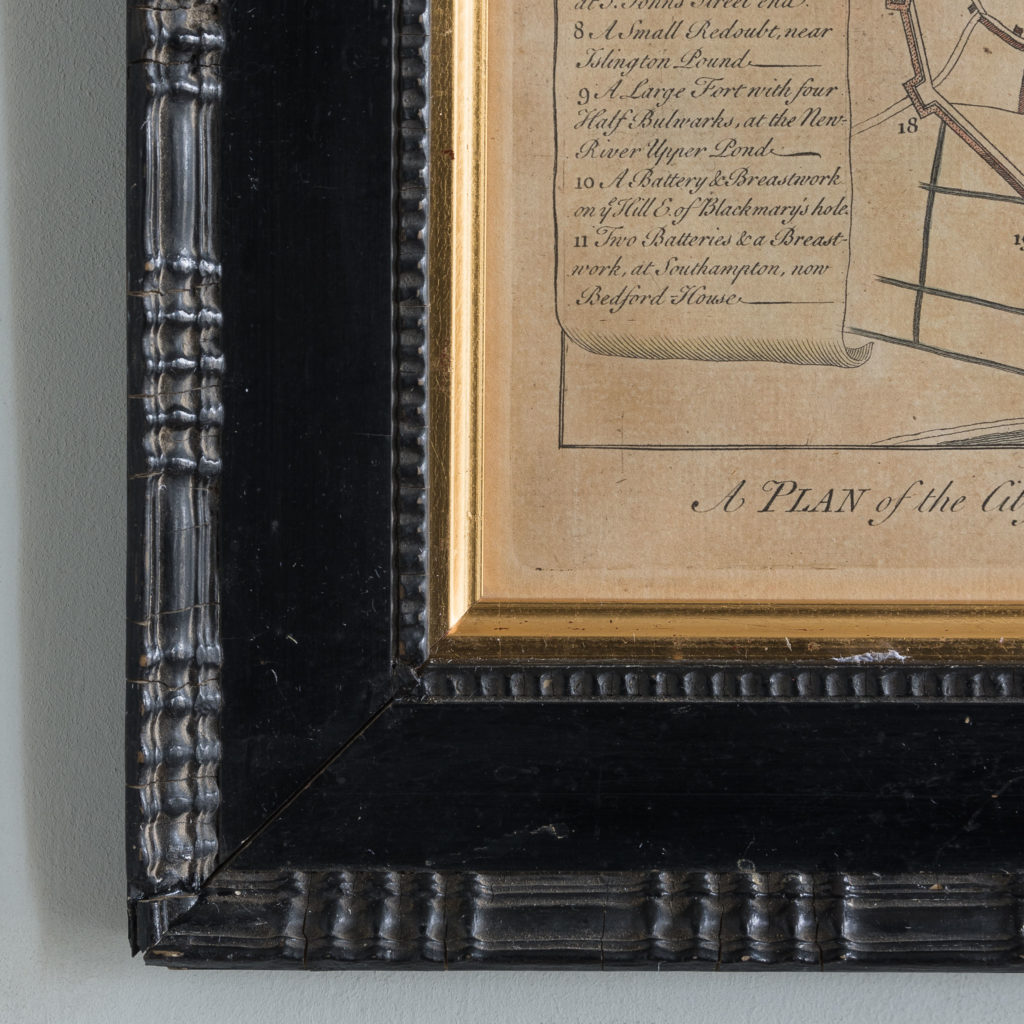 at S. Johns Street end.
8 A Small Redoubt, near
Islington Pound
9 A Large Fort with four
Half Bulwarks, at the New-
River Upper Pond
10 A Battery & Breastwork
on yͤ Hill E. of Blackmary's hole.
11 Two Batteries & a Breast-
work, at Southampton, now
Bedford House
18
19
A PLAN of the City